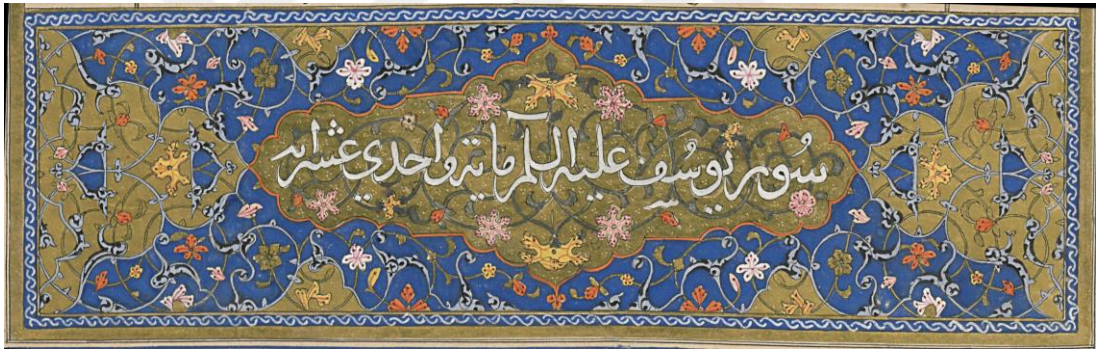 سورة يوسف عليه السلم ماية واحدي عشر اية